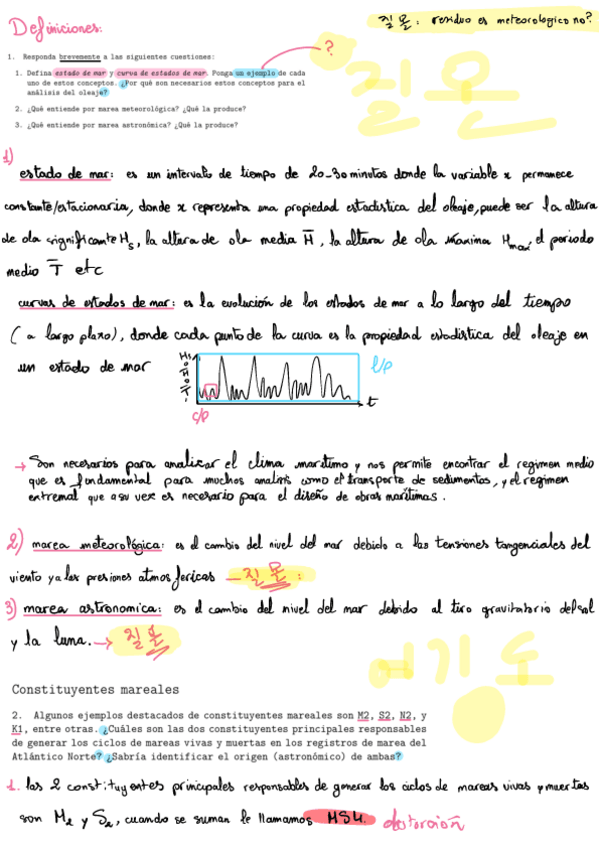 Definiciones:
질문: residuo es meteorologico no?
?
질문
1. Responda brevemente a las siguientes cuestiones:
1. Defina estado de mar y curva de estados de mar. Ponga un ejemplo de cada
uno de estos conceptos. ¿Por qué son necesarios estos conceptos para el
análisis del oleaje?
2. ¿Qué entiende por marea meteorológica? ¿Qué la produce?
3. ¿Qué entiende por marea astronómica? ¿Qué la produce?
1)
estado de mar: es un intervalo de tiempo de 20-30 minutos donde la variable x permanece
constante/estacionaria, donde x representa una propiedad estadistica del oleaje, puede ser la altura
de ola significante Hs, la altura de ola media H̅, la altura de ola maxima Hmax, el periodo
medio T̅ etc
curvas de estados de mar: es la evolución de los estados de mar a lo largo del tiempo
(a largo plazo), donde cada punto de la curva es la propiedad estadistica del oleaje en
un estado de mar
Hs
l/p
t
c/p
→ Son necesarios para analizar el clima maritimo y nos permite encontrar el regimen medio
que es fundamental para muchos analisis como el transporte de sedimentos, y el regimen
extremal que a su vez es necesario para el diseño de obras maritimas.
2) marea meteorológica: es el cambio del nivel del mar debido a las tensiones tangenciales del
viento y a las presiones atmosfericas → 질문:
3) marea astronomica: es el cambio del nivel del mar debido al tiro gravitatorio del sol
y la luna. → 질문
여기도
Constituyentes mareales
2. Algunos ejemplos destacados de constituyentes mareales son M2, S2, N2, y
K1, entre otras. ¿Cuáles son las dos constituyentes principales responsables
de generar los ciclos de mareas vivas y muertas en los registros de marea del
Atlántico Norte? ¿Sabría identificar el origen (astronómico) de ambas?
1. las 2 constituyentes principales responsables de generar los ciclos de mareas vivas y muertas
son M2 y S2, cuando se suman le llamamos MS4. distorción